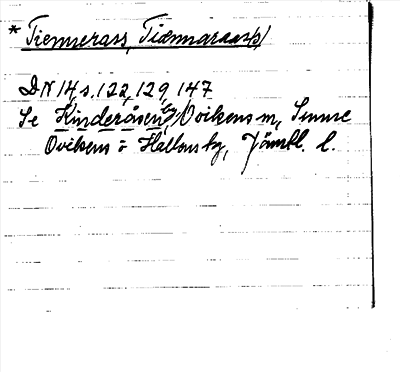 * Tiennerass, Tiænnaraas(s)
DN 14, s. 122, 129, 147
Se Kinderåsen by, Ovikens sn, Sunne
Ovikens o Hallens tg, Jämtl. l.